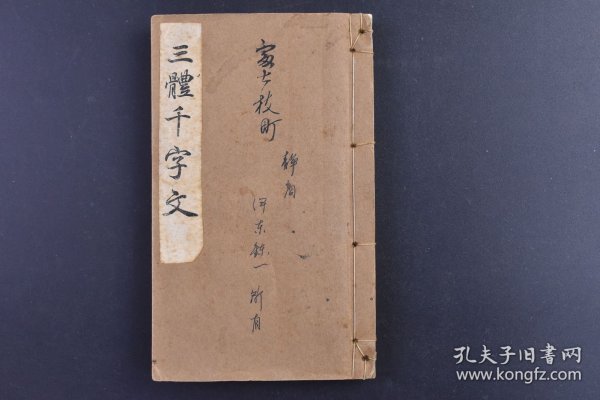 三體千字文
士枝町
静岡
東 一 所有
孔夫子旧书网
www.kongfz.com